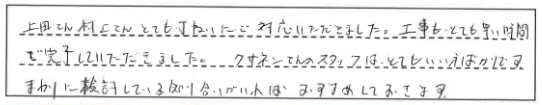 上田さん村上さんとても丁ねいにご対応いただきました。工事もとても早い時間
で完了していただきました。クサネンさんのスタッフはとてもいい人ばかりです
まわりに検討している知り合いがいればおすすめしておきます